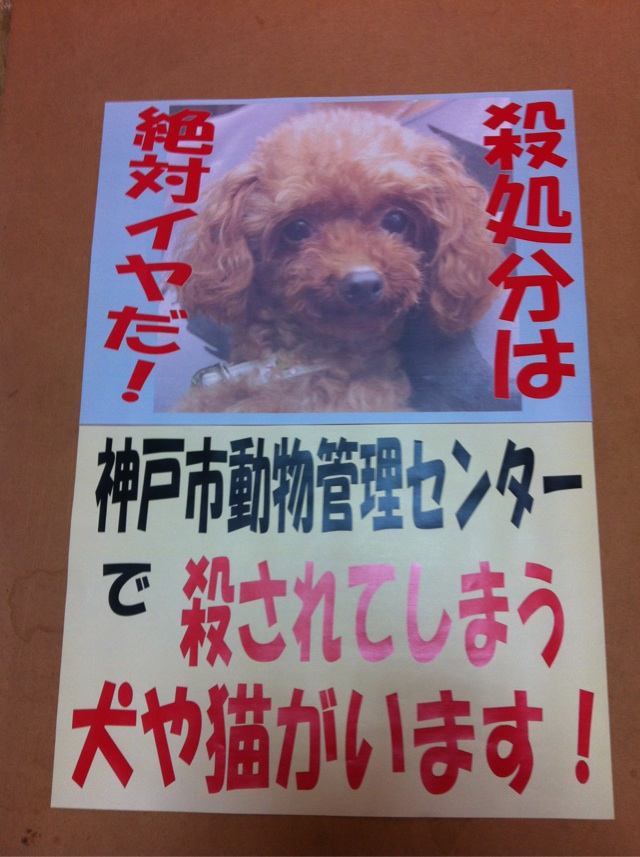 殺処分は
絶対イヤだ！
神戸市動物管理センター
で 殺されてしまう
犬や猫がいます！